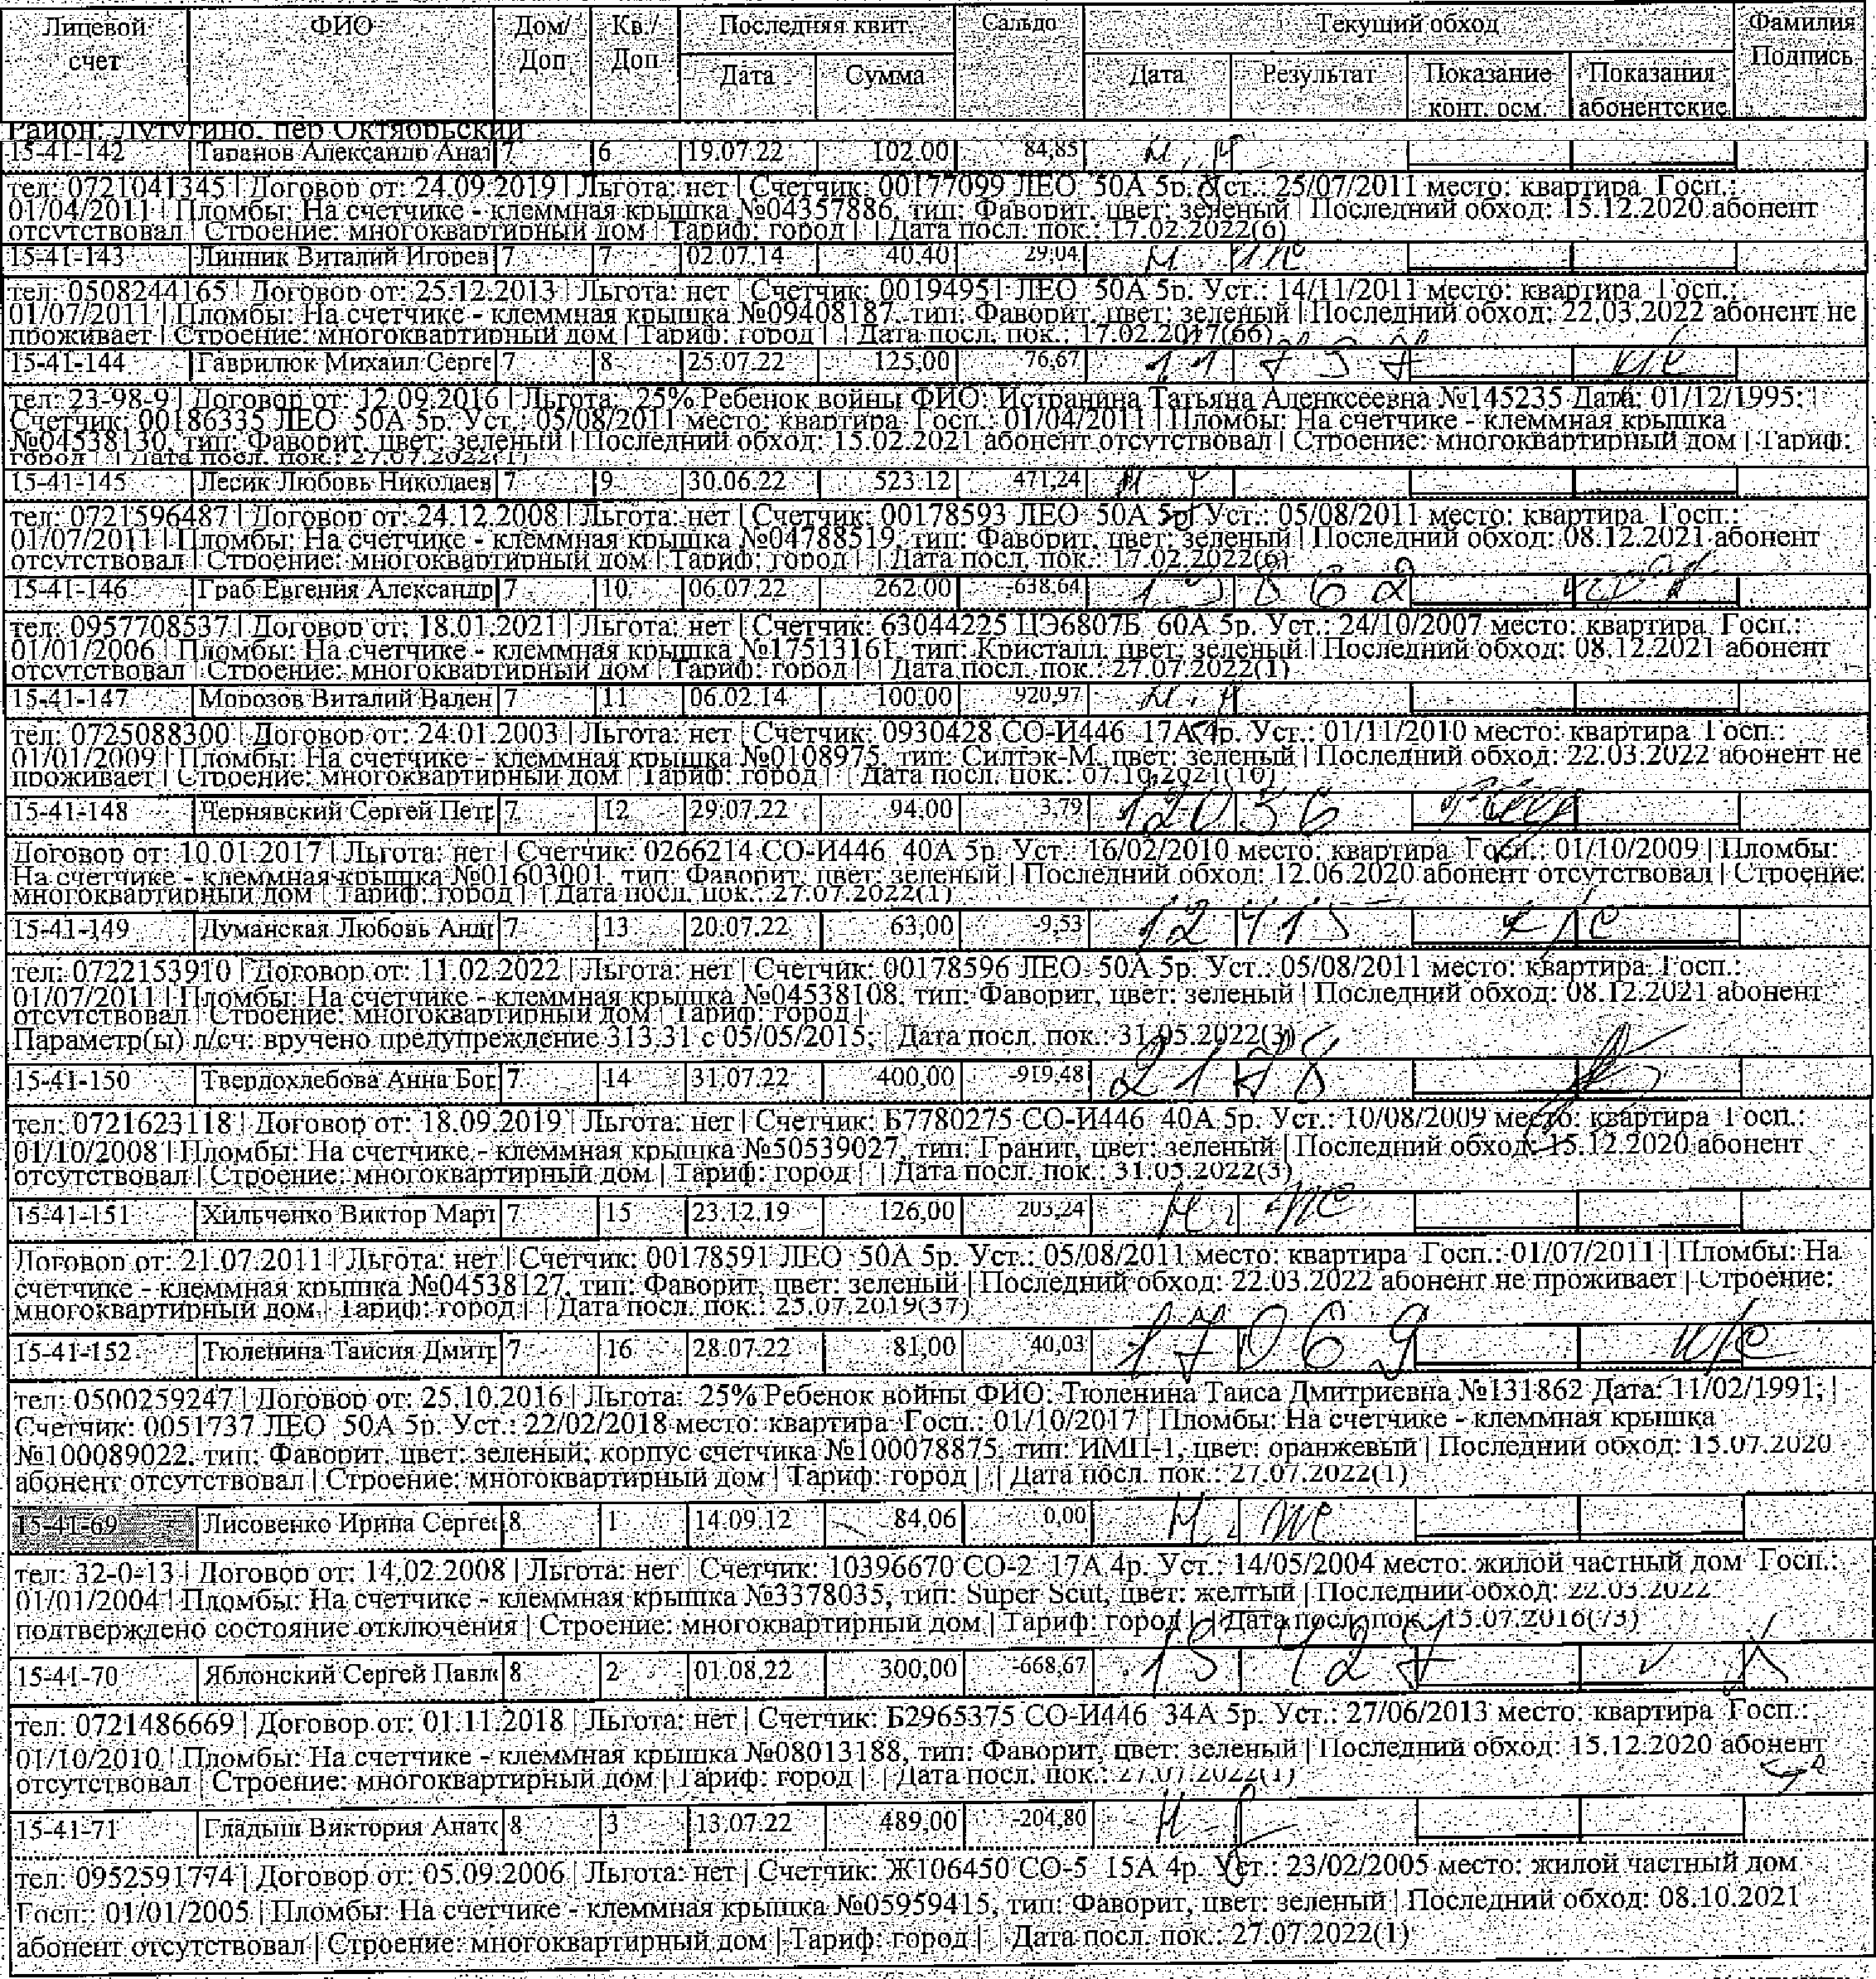 Лицевой счет ФИО Дом/ Доп Кв./ Доп Последняя квит. Сальдо Текущий обход Фамилия Подпись
Дата Сумма Дата Результат Показание конт. осм. Показания абонентские
Район: Лутугино, пер Октябрьский
15-41-142 Таранов Александр Анат 7 6 19.07.22 102.00 84,85
тел: 0721041345 | Договор от: 24.09.2019 | Льгота: нет | Счетчик: 00177099 ЛЕО 50А 5р. Уст.: 25/07/2011 место: квартира Госп.:
01/04/2011 | Пломбы: На счетчике - клеммная крышка №04357886, тип: Фаворит, цвет: зеленый | Последний обход: 15.12.2020 абонент
отсутствовал | Строение: многоквартирный дом | Тариф: город | | Дата посл. пок.: 17.02.2022(6)
15-41-143 Линник Виталий Игорев 7 7 02.07.14 40.40 29,04
тел: 0508244165 | Договор от: 25.12.2013 | Льгота: нет | Счетчик: 0019495 ЛЕО 50А 5р. Уст.: 14/11/2011 место: квартира Госп.:
01/07/2011 | Пломбы: На счетчике - клеммная крышка №09408187, тип: Фаворит, цвет: зеленый | Последний обход: 22.03.2022 абонент не
проживает | Строение: многоквартирный дом | Тариф: город | | Дата посл. пок.: 17.02.2017(66)
15-41-144 Гаврилюк Михаил Серге 7 8 25.07.22 125,00 76,67 11737 н/с
тел: 23-98-9 | Договор от: 12.09.2016 | Льгота: 25% Ребенок войны ФИО: Истранина Татьяна Аленксеевна №145235 Дата: 01/12/1995; |
Счетчик: 00186335 ЛЕО 50А 5р. Уст.: 05/08/2011 место: квартира Госп.: 01/04/2011 | Пломбы: На счетчике - клеммная крышка
№04538130, тип: Фаворит, цвет: зеленый | Последний обход: 15.02.2021 абонент отсутствовал | Строение: многоквартирный дом | Тариф:
город | | Дата посл. пок.: 27.07.2022(1)
15-41-145 Лесик Любовь Николаев 7 9 30.06.22 523.12 471,24
тел: 0721596487 | Договор от: 24.12.2008 | Льгота: нет | Счетчик: 00178593 ЛЕО 50А 5р. Уст.: 05/08/2011 место: квартира Госп.:
01/07/2011 | Пломбы: На счетчике - клеммная крышка №04788519, тип: Фаворит, цвет: зеленый | Последний обход: 08.12.2021 абонент
отсутствовал | Строение: многоквартирный дом | Тариф: город | | Дата посл. пок.: 17.02.2022(6)
15-41-146 Граб Евгения Александр 7 10 06.07.22 262.00 -638,64 15862
тел: 0957708537 | Договор от: 18.01.2021 | Льгота: нет | Счетчик: 63044225 ЦЭ6807Б 60А 5р. Уст.: 24/10/2007 место: квартира Госп.:
01/01/2006 | Пломбы: На счетчике - клеммная крышка №17513161, тип: Кристалл, цвет: зеленый | Последний обход: 08.12.2021 абонент
отсутствовал | Строение: многоквартирный дом | Тариф: город | | Дата посл. пок.: 27.07.2022(1)
15-41-147 Морозов Виталий Вален 7 11 06.02.14 100.00 -920,97
тел: 0725088300 | Договор от: 24.01.2003 | Льгота: нет | Счетчик: 0930428 СО-И446 17А 4р. Уст.: 01/11/2010 место: квартира Госп.:
01/01/2009 | Пломбы: На счетчике - клеммная крышка №0108975, тип: Силтэк-М, цвет: зеленый | Последний обход: 22.03.2022 абонент не
проживает | Строение: многоквартирный дом | Тариф: город | | Дата посл. пок.: 07.10.2021(10)
15-41-148 Чернявский Сергей Петр 7 12 29.07.22 94.00 3,79 12036
Договор от: 10.01.2017 | Льгота: нет | Счетчик: 0266214 СО-И446 40А 5р. Уст.: 16/02/2010 место: квартира Госп.: 01/10/2009 | Пломбы:
На счетчике - клеммная крышка №01603001, тип: Фаворит, цвет: зеленый | Последний обход: 12.06.2020 абонент отсутствовал | Строение:
многоквартирный дом | Тариф: город | | Дата посл. пок.: 27.07.2022(1)
15-41-149 Думанская Любовь Анд 7 13 20.07.22 63,00 -9,53 12415
тел: 0722153910 | Договор от: 11.02.2022 | Льгота: нет | Счетчик: 00178596 ЛЕО 50А 5р. Уст.: 05/08/2011 место: квартира Госп.:
01/07/2011 | Пломбы: На счетчике - клеммная крышка №04538108, тип: Фаворит, цвет: зеленый | Последний обход: 08.12.2021 абонент
отсутствовал | Строение: многоквартирный дом | Тариф: город |
Параметр(ы) л/сч: вручено предупреждение 313.31 с 05/05/2015; | Дата посл. пок.: 31.05.2022(3)
15-41-150 Твердохлебова Анна Бор 7 14 31.07.22 400,00 -919,48 2178
тел: 0721623118 | Договор от: 18.09.2019 | Льгота: нет | Счетчик: Б7780275 СО-И446 40А 5р. Уст.: 10/08/2009 место: квартира Госп.:
01/10/2008 | Пломбы: На счетчике - клеммная крышка №50539027, тип: Гранит, цвет: зеленый | Последний обход: 15.12.2020 абонент
отсутствовал | Строение: многоквартирный дом | Тариф: город | | Дата посл. пок.: 31.05.2022(3)
15-41-151 Хильченко Виктор Март 7 15 23.12.19 126,00 203,24
Договор от: 21.07.2011 | Льгота: нет | Счетчик: 00178591 ЛЕО 50А 5р. Уст.: 05/08/2011 место: квартира Госп.: 01/07/2011 | Пломбы: На
счетчике - клеммная крышка №04538127, тип: Фаворит, цвет: зеленый | Последний обход: 22.03.2022 абонент не проживает | Строение:
многоквартирный дом | Тариф: город | | Дата посл. пок.: 25.07.2019(37)
15-41-152 Тюленина Таисия Дмитр 7 16 28.07.22 81,00 40,03 17069 н/с
тел: 0500259247 | Договор от: 25.10.2016 | Льгота: 25% Ребенок войны ФИО: Тюленина Таиса Дмитриевна №131862 Дата: 11/02/1991; |
Счетчик: 0051737 ЛЕО 50А 5р. Уст.: 22/02/2018 место: квартира Госп.: 01/10/2017 | Пломбы: На счетчике - клеммная крышка
№100089022, тип: Фаворит, цвет: зеленый; корпус счетчика №100078875, тип: ИМП-1, цвет: оранжевый | Последний обход: 15.07.2020
абонент отсутствовал | Строение: многоквартирный дом | Тариф: город | | Дата посл. пок.: 27.07.2022(1)
15-41-69 Лисовенко Ирина Серге 8 1 14.09.12 84,06 0,00
тел: 32-0-13 | Договор от: 14.02.2008 | Льгота: нет | Счетчик: 10396670 СО-2 17А 4р. Уст.: 14/05/2004 место: жилой частный дом Госп.:
01/01/2004 | Пломбы: На счетчике - клеммная крышка №3378035, тип: Super Scut, цвет: желтый | Последний обход: 22.03.2022
подтверждено состояние отключения | Строение: многоквартирный дом | Тариф: город | | Дата посл. пок.: 15.07.2016(73)
15-41-70 Яблонский Сергей Павл 8 2 01.08.22 300,00 -668,67 15427
тел: 0721486669 | Договор от: 01.11.2018 | Льгота: нет | Счетчик: Б2965375 СО-И446 34А 5р. Уст.: 27/06/2013 место: квартира Госп.:
01/10/2010 | Пломбы: На счетчике - клеммная крышка №08013188, тип: Фаворит, цвет: зеленый | Последний обход: 15.12.2020 абонент
отсутствовал | Строение: многоквартирный дом | Тариф: город | | Дата посл. пок.: 27.07.2022(1)
15-41-71 Гладыш Виктория Анато 8 3 13.07.22 489,00 -204,80
тел: 0952591774 | Договор от: 05.09.2006 | Льгота: нет | Счетчик: Ж106450 СО-5 15А 4р. Уст.: 23/02/2005 место: жилой частный дом
Госп.: 01/01/2005 | Пломбы: На счетчике - клеммная крышка №05959415, тип: Фаворит, цвет: зеленый | Последний обход: 08.10.2021
абонент отсутствовал | Строение: многоквартирный дом | Тариф: город | | Дата посл. пок.: 27.07.2022(1)